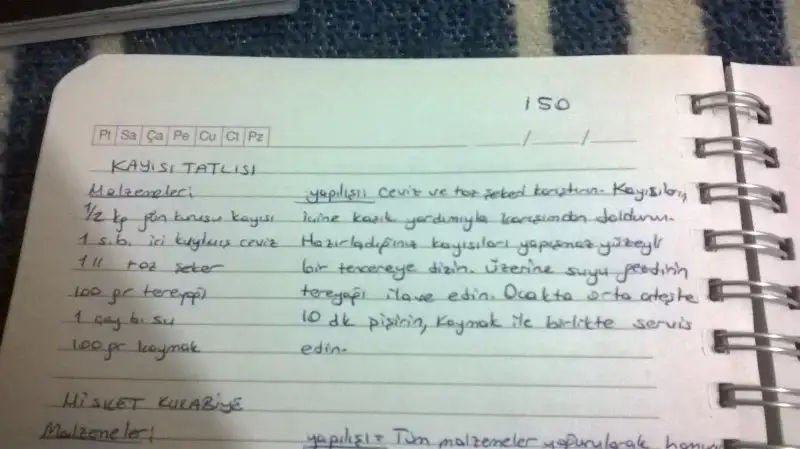 150
Pt Sa Ça Pe Cu Ct Pz
__/__/__
KAYISI TATLISI
Malzemeleri
1/2 kg gün kurusu kayısı
1 s.b. iri ceviz
1 11 toz şeker
100 gr tereyağı
1 çay b. su
100 gr kaymak
yapılışı: Ceviz ve toz şekeri karıştırın. Kayısıların
içine kaşık yardımıyla karışımdan doldurun.
Hazırladığınız kayısıları yapışmaz yüzeyli
bir tencereye dizin. Üzerine suyu gezdirin
tereyağı ilave edin. Ocakta orta ateşte
10 dk pişirin, Kaymak ile birlikte servis
edin.
MİSKET KURABİYE
Malzemeleri
yapılışı = Tüm malzemeler yoğurularak